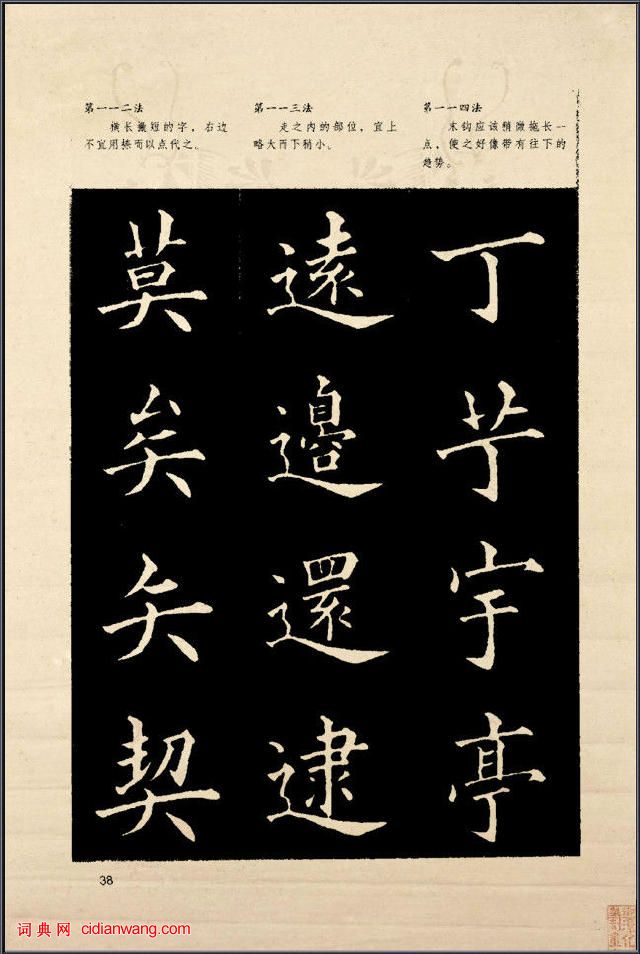 第一一二法
横长撇短的字，右边
不宜用捺而以点代之。
第一一三法
走之内的部位，宜上
略大而下稍小。
第一一四法
末钩应该稍微拖长一
点，使之好像带有往下的
趋势。
莫矣矢契
遠邊還逮
丁艼宇亭
38
词典网 cidianwang.com